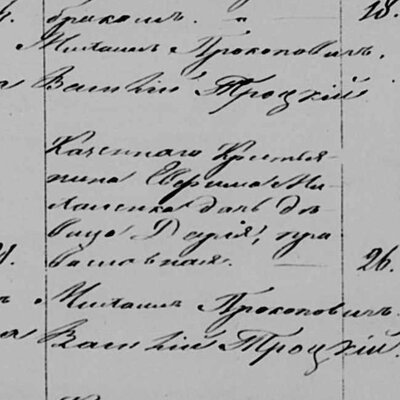 бракомъ. " 18.
Михаилъ Прокоповичъ.
Василій Троцкій
Казеннаго Крестья-
нина Ефрима Ми-
хаменка дочь дѣ-
вица Дарія, пра
вославная. 26.
Михаилъ Прокоповичъ.
Василій Троцкій.